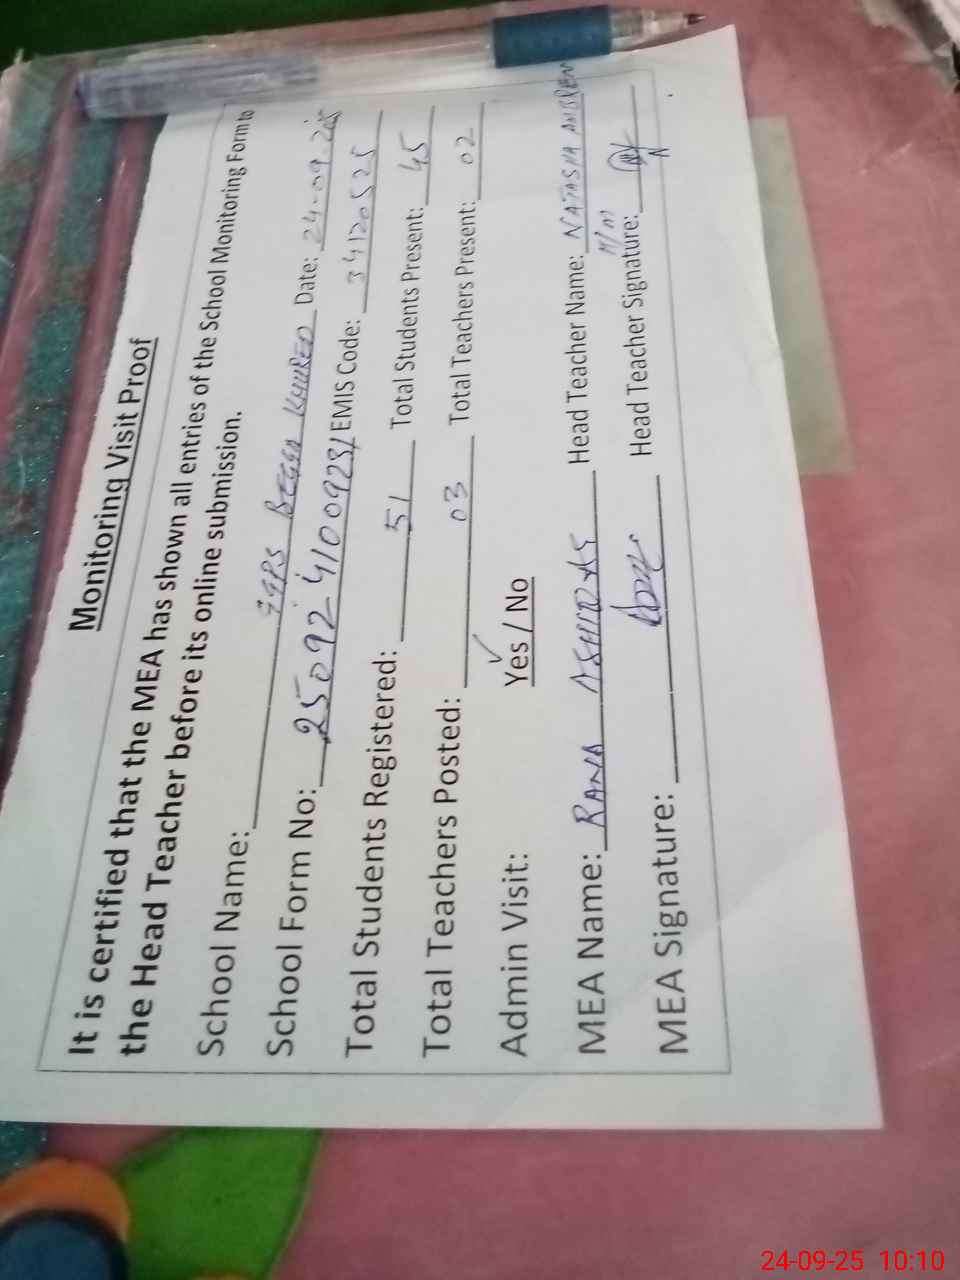 Monitoring Visit Proof
It is certified that the MEA has shown all entries of the School Monitoring Form to
the Head Teacher before its online submission.
School Name: GGPS Date: 24-09-2025
School Form No: 25092410092 EMIS Code: 34120525
Total Students Registered: 51 Total Students Present: 45
Total Teachers Posted: 03 Total Teachers Present: 02
Admin Visit: Yes / No
MEA Name: RANA Head Teacher Name: NATASHA
H/m
MEA Signature: Head Teacher Signature:
24-09-25 10:10